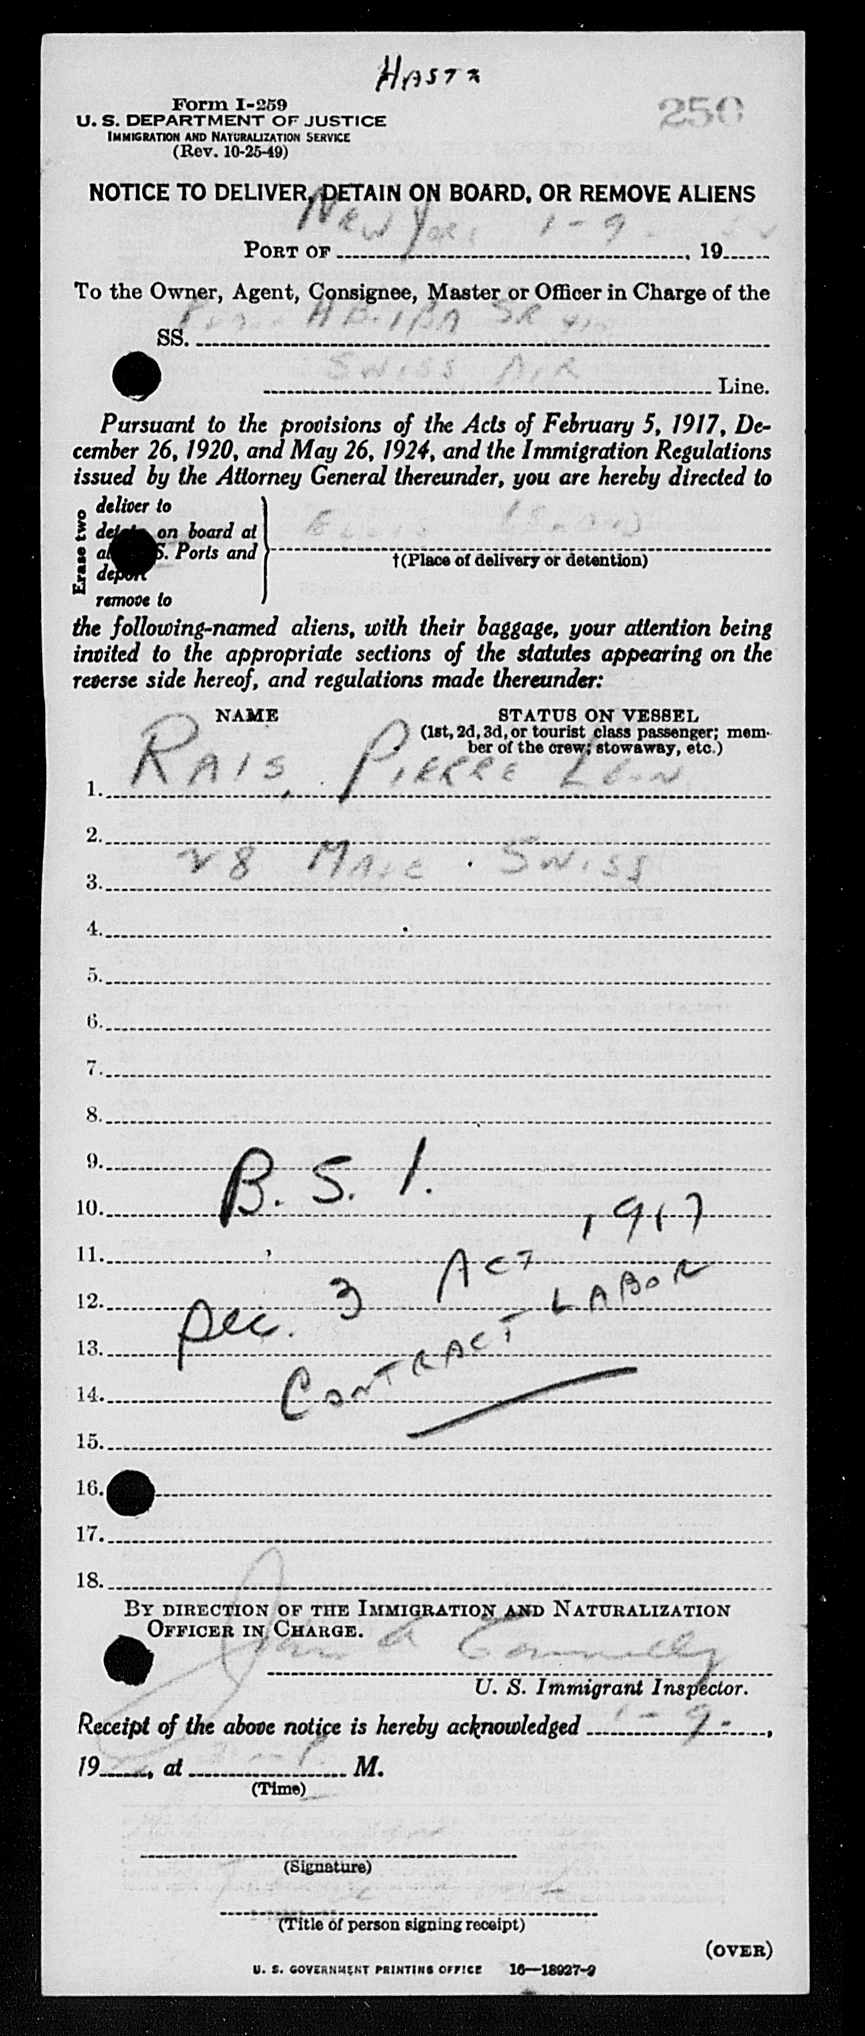 HASTZ
250
Form I-259
U. S. DEPARTMENT OF JUSTICE
IMMIGRATION AND NATURALIZATION SERVICE
(Rev. 10-25-49)
NOTICE TO DELIVER, DETAIN ON BOARD, OR REMOVE ALIENS
PORT OF New York 1-9- , 19
To the Owner, Agent, Consignee, Master or Officer in Charge of the
SS. HB-IBA SR
SWISS AIR Line.
Pursuant to the provisions of the Acts of February 5, 1917, De-
cember 26, 1920, and May 26, 1924, and the Immigration Regulations
issued by the Attorney General thereunder, you are hereby directed to
Erase two
deliver to
on board at
S. Ports and
deport
remove to
ELLIS ISLAND
†(Place of delivery or detention)
the following-named aliens, with their baggage, your attention being
invited to the appropriate sections of the statutes appearing on the
reverse side hereof, and regulations made thereunder:
NAME STATUS ON VESSEL
(1st, 2d, 3d, or tourist class passenger; mem-
ber of the crew; stowaway, etc.)
1. RAIS, PIERRE LEON
2.
28 MALE SWISS
3.
4.
5.
6.
7.
8.
9.
B. S. I.
10. 1917
11. ACT
12. Sec. 3 LABOR
13. CONTRACT
14.
15.
16.
17.
18.
BY DIRECTION OF THE IMMIGRATION AND NATURALIZATION
OFFICER IN CHARGE.
John A Connelly
U. S. Immigrant Inspector.
Receipt of the above notice is hereby acknowledged 1-9- ,
19 , at M.
(Time)
(Signature)
(Title of person signing receipt)
(OVER)
U. S. GOVERNMENT PRINTING OFFICE 16—18927-2